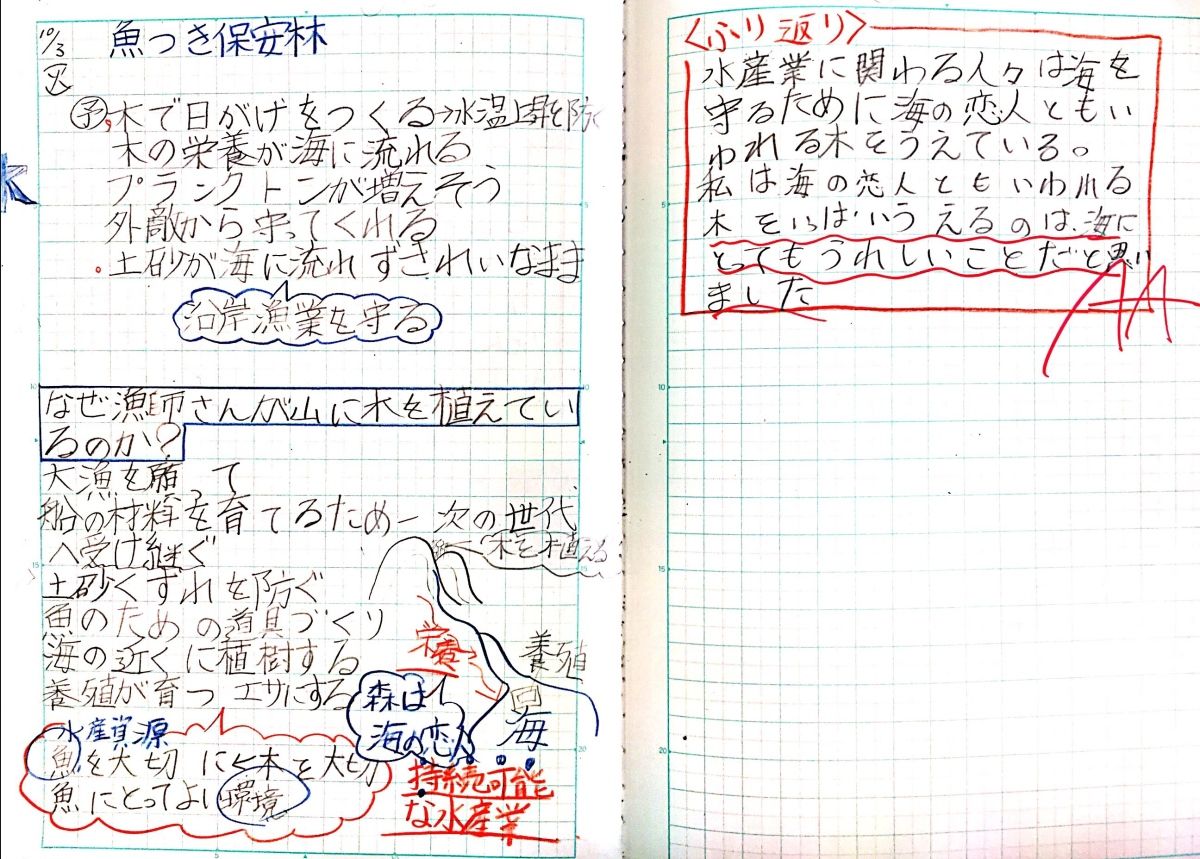 10/3
魚つき保安林
予 木で日がげをつくる→水温上昇を防ぐ
木の栄養が海に流れる
プランクトンが増えそう
外敵から守ってくれる
土砂が海に流れずきれいなまま
沿岸漁業を守る
なぜ漁師さんが山に木を植えてい
るのか?
大漁を願って
船の材料を育てるため― 次の世代
へ受け継ぐ
木を植える
土砂くずれを防ぐ
魚のための道具づくり
海の近くに植樹する
養殖が育つエサにする
栄養
養殖
海
森は
海の恋人
水産資源
魚を大切に 木を大切
魚にとってよい環境
持続可能
な水産業
<ふり返り>
水産業に関わる人々は海を
守るために海の恋人ともい
われる木をうえている。
私は海の恋人ともいわれる
木をいっぱいうえるのは、海に
とってもうれしいことだと思い
ました
AA